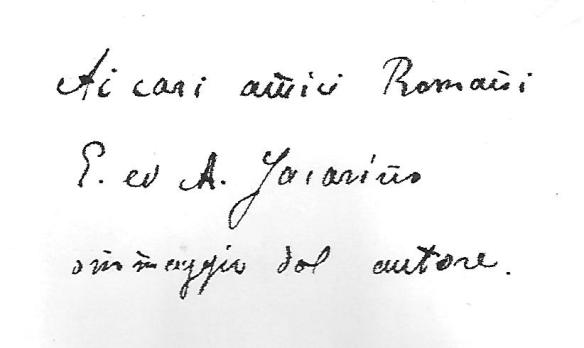 Ai cari amici Romani
E. ed A. Jacarino
ommaggio dal autore.